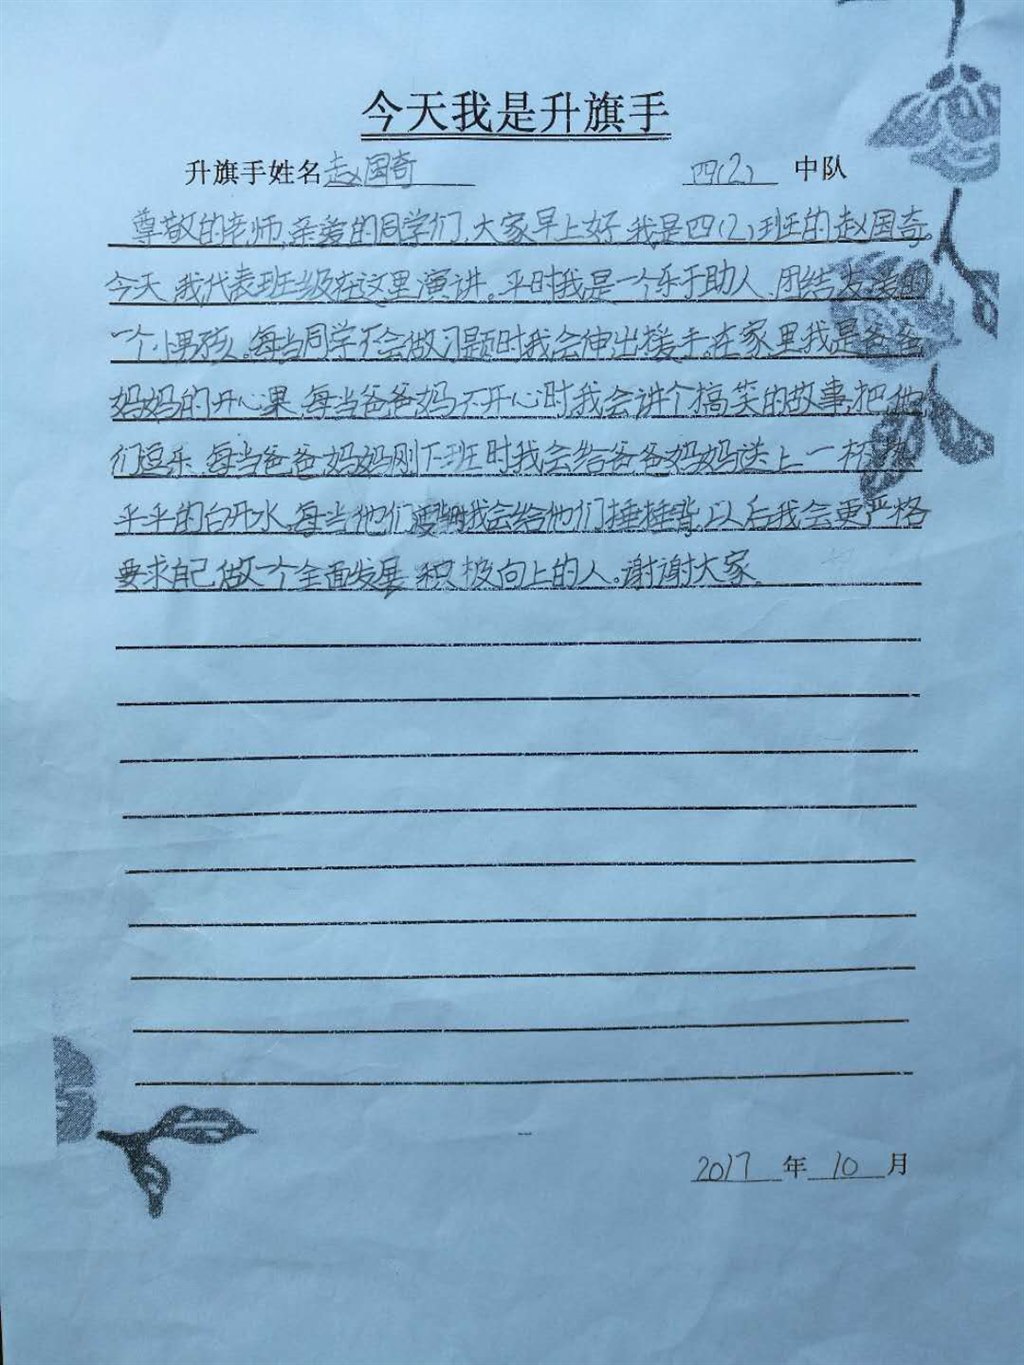 今天我是升旗手
升旗手姓名赵国奇 四(2) 中队
尊敬的老师,亲爱的同学们,大家早上好,我是四(2)班的赵国奇,
今天,我代表班级在这里演讲。平时我是一个乐于助人、团结友爱的
一个小男孩。每当同学不会做习题时我会伸出援手,在家里我是爸爸
妈妈的开心果,每当爸爸妈不开心时,我会讲个搞笑的故事,把他
们逗乐,每当爸爸妈妈刚下班时我会给爸爸妈妈送上一杯热
乎乎的白开水,每当他们我会给他们捶捶背,以后我会更严格
要求自己,做一个全面发展,积极向上的人。谢谢大家。
2017年10月